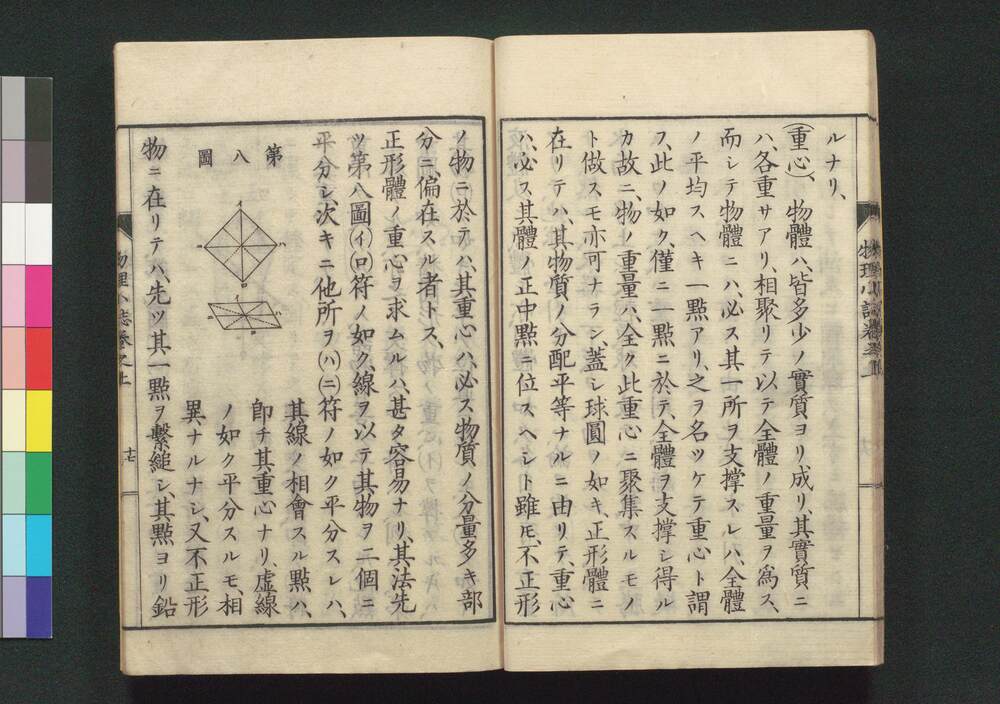 ルナリ、
(重心)、物體ハ、皆多少ノ實質ヨリ成リ、其實質ニ
ハ、各重サアリ、相聚リテ以テ全體ノ重量ヲ爲ス、
而シテ物體ニハ、必ス其一所ヲ支撑スレハ、全體
ノ平均スヘキ一點アリ、之ヲ名ツケテ重心ト謂
ス、此ノ如ク、僅ニ一點ニ於テ、全體ヲ支撑シ得ル
カ故ニ、物ノ重量ハ、全ク此重心ニ聚集スルモノ
ト做スモ亦可ナラン、蓋シ球圓ノ如キ、正形體ニ
在リテハ、其物質ノ分配平等ナルニ由リテ、重心
ハ、必ス其體ノ正中點ニ位スヘシト雖𪜈、不正形
ノ物ニ於テハ、其重心ハ、必ス物質ノ分量多キ部
分ニ、偏在スル者トス、
正形體ノ重心ヲ求ムルハ、甚タ容易ナリ、其法先
ツ第八圖(イ)(ロ)符ノ如ク、線ヲ以テ其物ヲ二個ニ
平分シ、次キニ他所ヲ(ハ)(ニ)符ノ如ク平分スレハ、
其線ノ相會スル點ハ、
卽チ其重心ナリ、虚線
ノ如ク平分スルモ、相
異ナルナシ、又不正形
第八圖
物ニ在リテハ、先ツ其一點ヲ繫縋シ、其點ヨリ鉛
物理小誌卷之上
十七